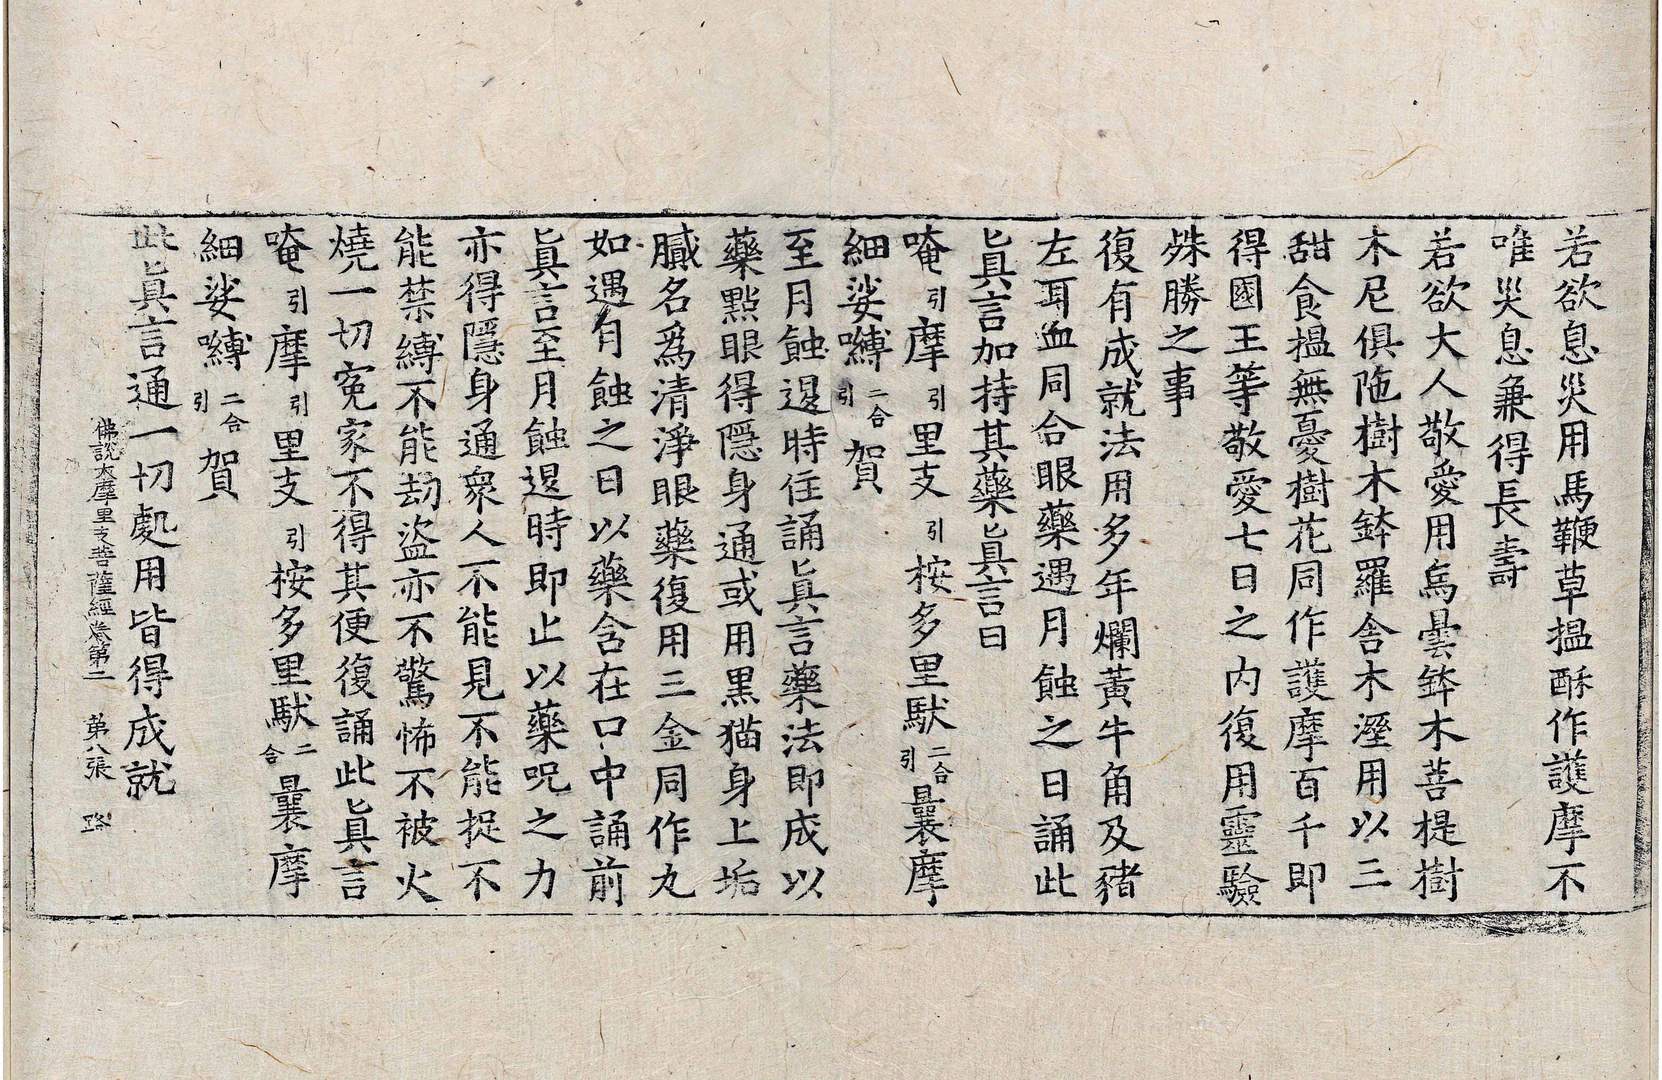 若欲息災用馬鞭草搵酥作護摩不
唯災息兼得長壽
若欲大人敬愛用烏曇鉢木菩提樹
木尼俱陁樹木鉢羅舍木溼用以三
甜食搵無憂樹花同作護摩百千即
得國王等敬愛七日之內復用靈驗
殊勝之事
復有成就法用多年爛黃牛角及豬
左耳血同合眼藥遇月蝕之日誦此
眞言加持其藥眞言曰
唵引摩引里支引桉多里馱二合引曩摩
細娑嚩二合引賀
至月蝕退時住誦眞言藥法即成以
藥點眼得隱身通或用黑猫身上垢
膩名爲清淨眼藥復用三金同作丸
如遇有蝕之日以藥含在口中誦前
眞言至月蝕退時即止以藥呪之力
亦得隱身通衆人不能見不能捉不
能禁縛不能劫盜亦不驚怖不被火
燒一切寃家不得其便復誦此眞言
唵引摩引里支引桉多里馱二合曩摩
細娑嚩二合引賀
此眞言通一切處用皆得成就
佛說大摩里支菩薩經卷第二 第八張 路